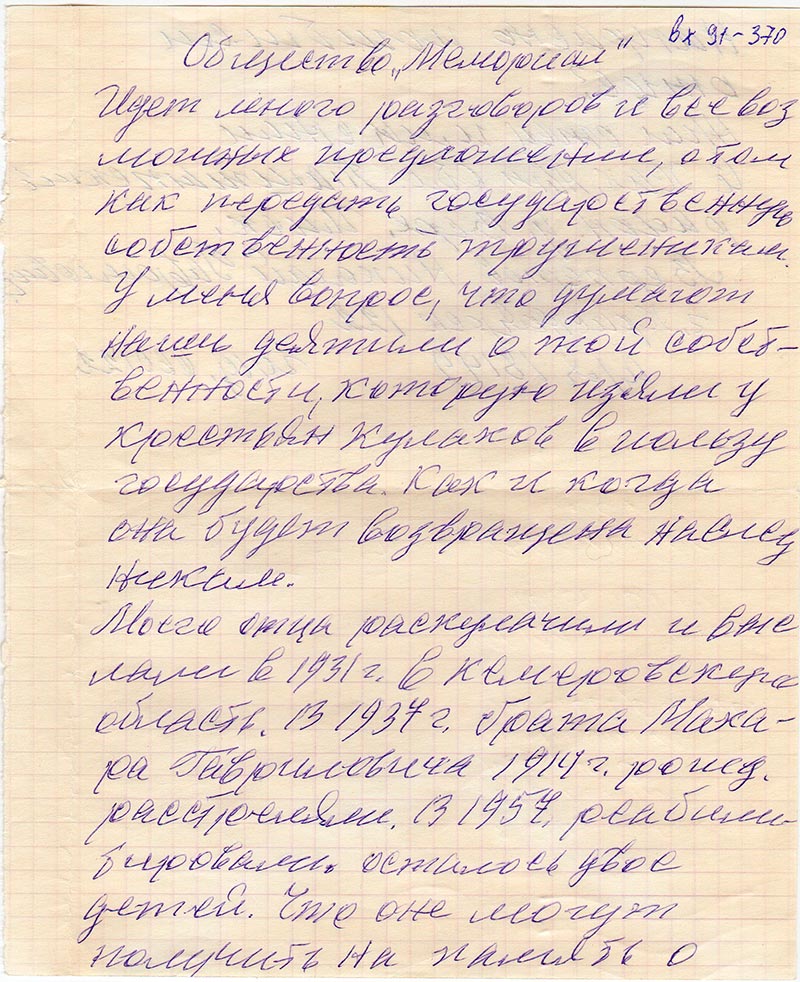 вх 91-370
Общество „Мемориал"
Идет много разговоров и всевоз
можных предложении, о том
как передать государственную
собственность труженикам.
У меня вопрос, что думают
наши деятили о той собст-
венности, которую изяли у
крестьян кулаков в пользу
государства. Как и когда
она будет возвращена наслед
никам.
Моего отца раскулачили и выс
лали в 1931 г. в Кемеровскую
область. В 1937 г. брата Мака-
ра Гавриловича 1914 г. рожд.
расстреляли. В 1957, реабили-
тировали. осталось двое
детей. Что оне могут
получить на память о